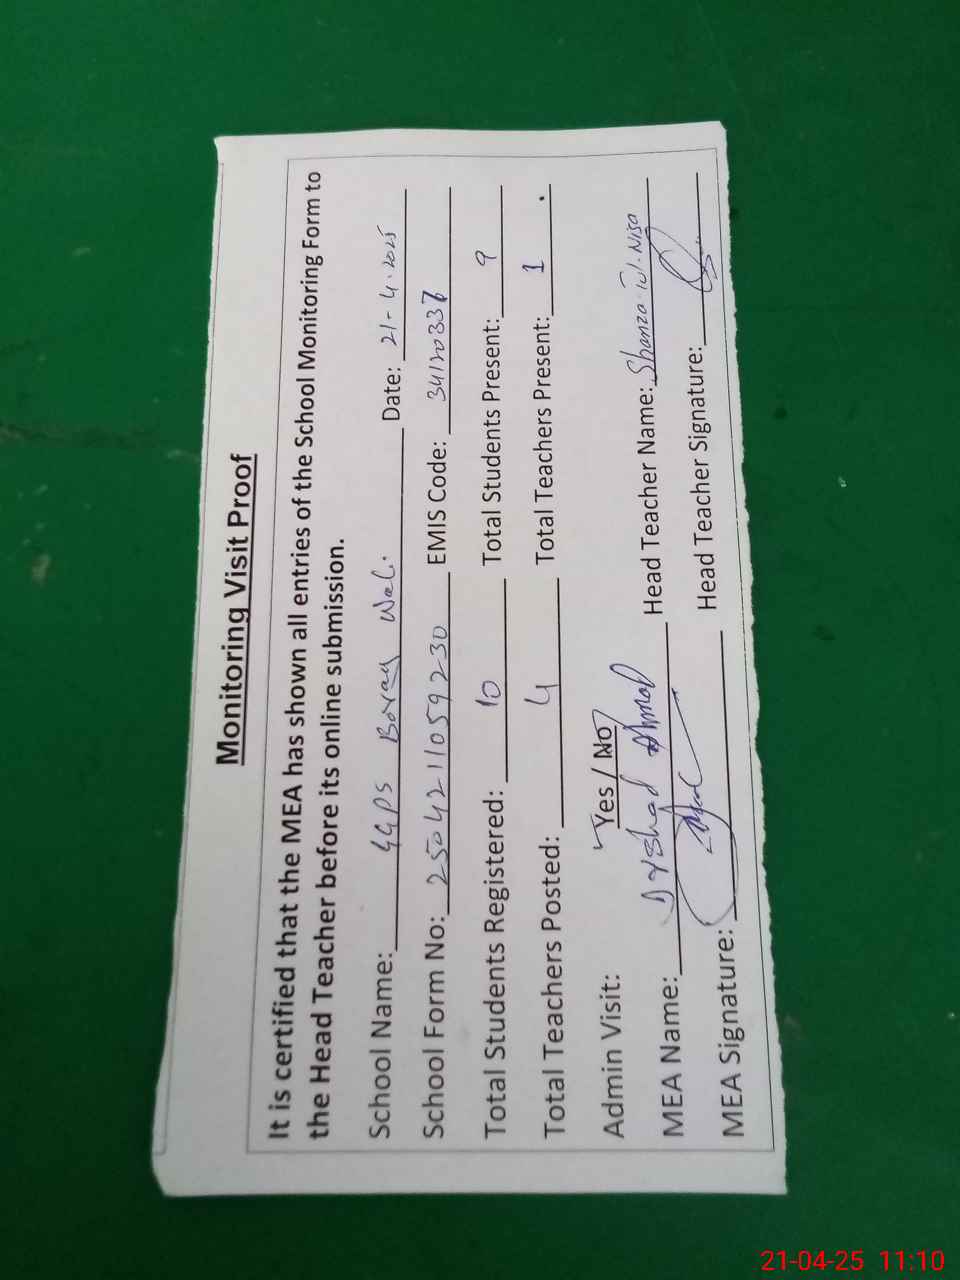 Monitoring Visit Proof
It is certified that the MEA has shown all entries of the School Monitoring Form to
the Head Teacher before its online submission.
School Name: GGPS Boray Wali Date: 21-4-2025
School Form No: 2504211059230 EMIS Code: 34120337
Total Students Registered: 10 Total Students Present: 9
Total Teachers Posted: 4 Total Teachers Present: 1
Admin Visit: Yes / No
MEA Name: Arshad Ahmad Head Teacher Name: Shanza-Tul-Nisa
MEA Signature: Head Teacher Signature:
21-04-25 11:10